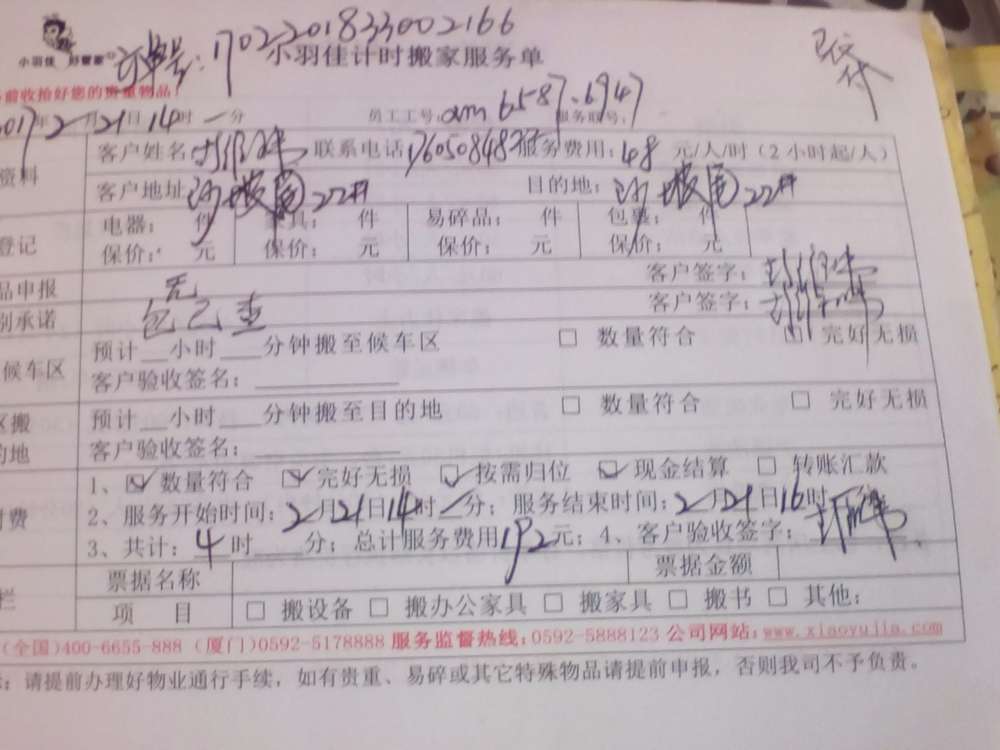 小羽佳 好管家
订单号：1702201833002166
小羽佳计时搬家服务单
已交
前收拾好您的贵重物品！
2017年2月21日14时 分 员工工号：am6587、6947
资料 客户姓名： 联系电话：176050848 服务费用：48元/人/时（2小时起/人）
客户地址： 22# 目的地： 22#
登记 电器： 件 家具： 件 易碎品： 件 包裹： 件
保价： 元 保价： 元 保价： 元 保价： 元
品申报 无 客户签字：
别承诺 包已查 客户签字：
候车区 预计__小时___分钟搬至候车区 □ 数量符合 □ 完好无损
客户验收签名：
区搬 预计__小时___分钟搬至目的地 □ 数量符合 □ 完好无损
的地 客户验收签名：
1、☑数量符合 ☑完好无损 ☑按需归位 ☑现金结算 □ 转账汇款
付费 2、服务开始时间：2月21日14时 分；服务结束时间：2月21日16时
3、共计：4时 分；总计服务费用192元；4、客户验收签字：
栏 票据名称 票据金额
项 目 □ 搬设备 □ 搬办公家具 □ 搬家具 □ 搬书 □ 其他：
（全国)400-6655-888 (厦门)0592-5178888 服务监督热线：0592-5888123 公司网站：www.xiaoyujia.com
：请提前办理好物业通行手续，如有贵重、易碎或其它特殊物品请提前申报，否则我司不予负责。